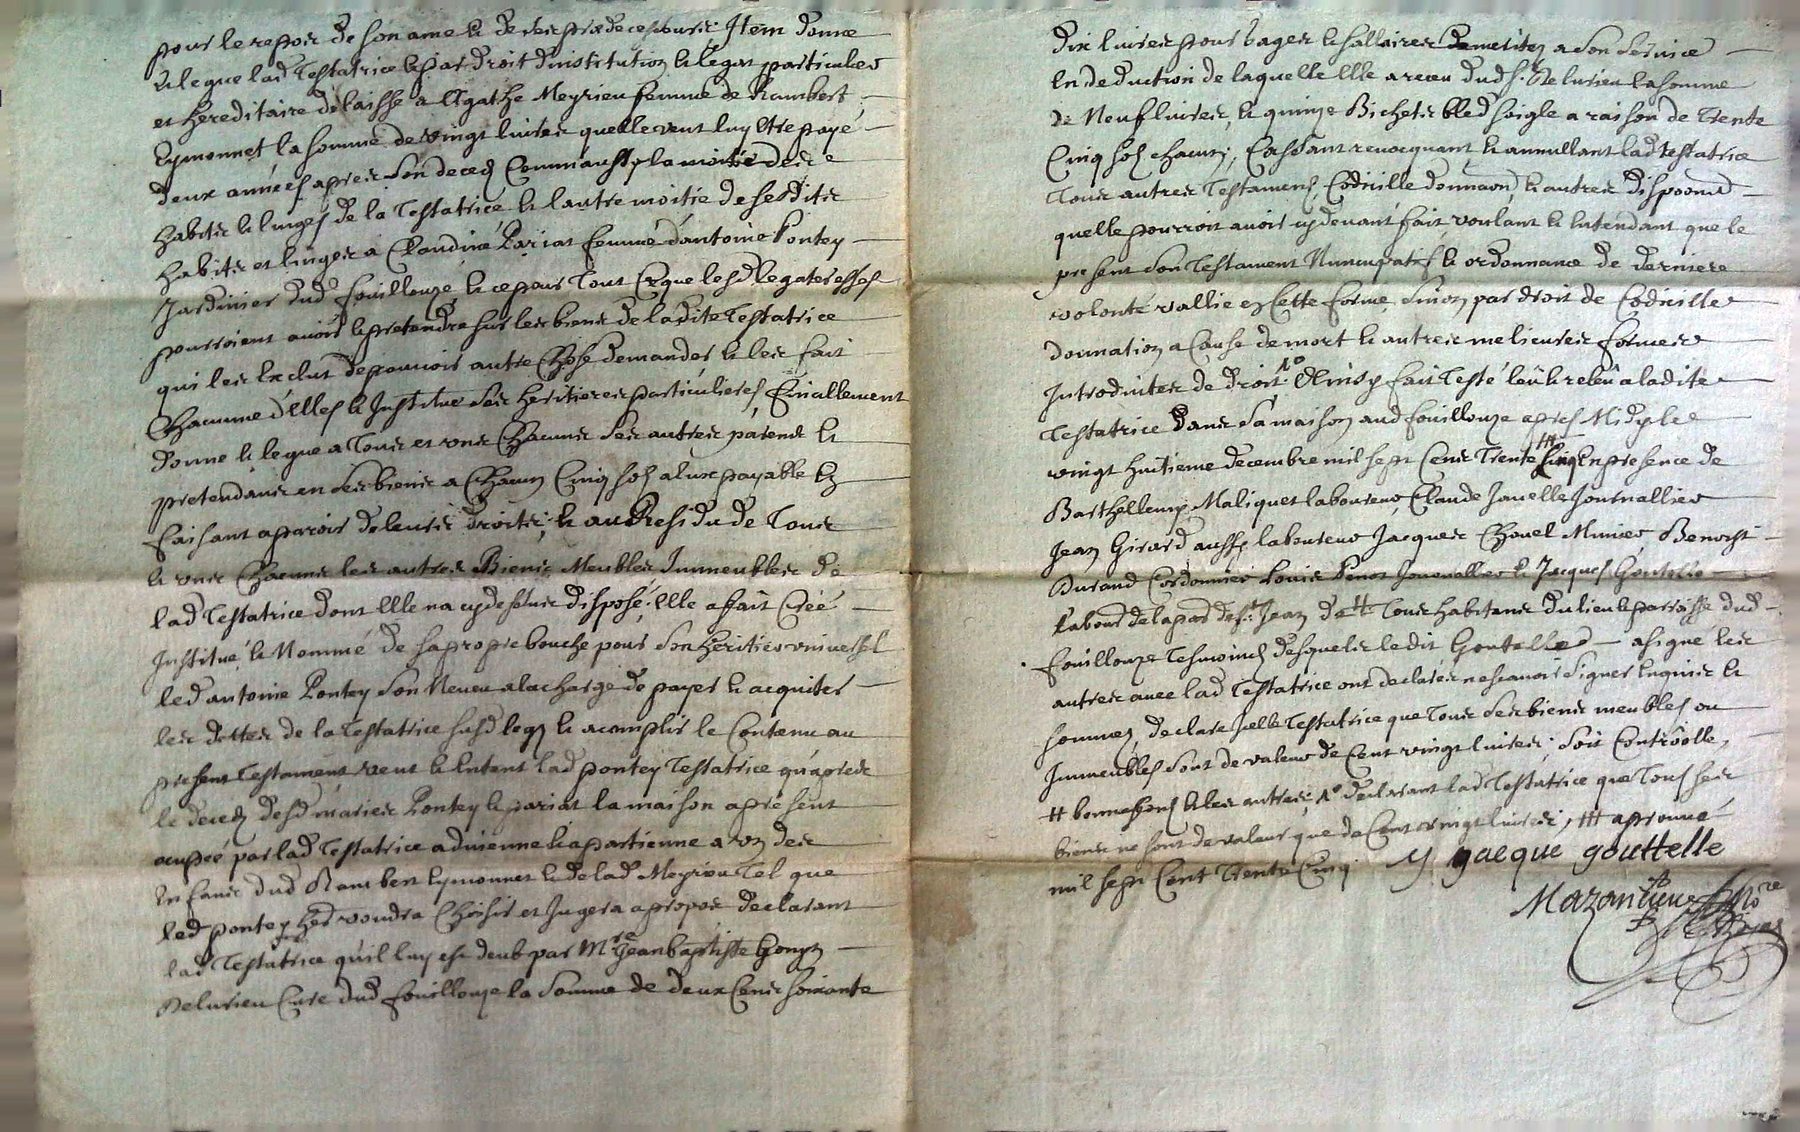 pour le repos de son ame & de ses predecesseurs Item donne
& legue lad Testatrice & par droit dinstitution & legat particulier
et hereditaire delaisse a Agathe Meyrieu femme de Rambert
Eymonnet la somme de vingt livres quelle veut luy Etre payé
deux années apres son deced Comm'aussy la moitié de ses
habits & linges de la Testatrice & lautre moitié de sesdits
habits et linges a Claudine Pariat femme dantoine Pontey
Jardinier dud fouillouze & ce pour Tout Ce que lesd legateresses
pourroient avoir & pretendre sur les biens de ladite Testatrice
qui les Exclut de pouvoir autre Chose demander & les fait
Chacunne d'elles & Institue ses heritieres particulieres Finallement
donne & legue a Tous et uns Chacuns ses autres parens &
pretendans en ses biens a Chacun Cinq sols a Eux payable En
faisant aparoir de leurs droits; & au Residu de Tous
& uns Chacuns les autres Biens Meubles Immeubles de
lad Testatrice dont Elle na cy dessus disposé, Elle a fait Créé
Institué & Nommé de sa propre bouche pour son heritier universel
led antoine Pontey son Neveu a la charge de payer & acquiter
les dettes de la Testatrice susd legs & acomplir le Contenu au
present Testament veut & Entent lad pontey Testatrice qu'apres
le deced desd maries Pontey & pariat la maison apresent
ocupeé par lad Testatrice advienne & apartienne a un des
Enfans dud Rambert Eymonnet & de lad Meyrieu Tel que
led pontey voudra Choisir et Jugera apropos declarant
lad Testatrice qu'il luy est deub par Mre Jean baptiste Gonyn
Delurieu Cure dud fouillouze la somme de deux Cens soixante
dix livres pour Gages & sallaires demerités a son service
En deduction de laquelle Elle a receu dud sr. Delurieu la somme
de Neuf livres, & quinze Bichets bled soigle a raison de Trente
Cinq sols chacun; Cassant revocquant & annullant lad testatrice
Tous autres Testament, Codicille donnaon & autres dispoond
quelle pourroit avoir cy devant fait, voulant & Entendant que le
present son Testament Nuncupatif & ordonnance de derniere
volonté vallie en Cette forme, sinon par droit de Codicille
donnation a Cause de mort & autres melieures formes
Introduites de droit No Ainsy fait Testé leu & releu a ladite
Testatrice dans sa maison aud fouillouze apres Midy le
vingt huitieme decembre mil sept Cens Trente Cinq En presence de
Barthellemy Maliquet laboureur, Claude Javelle Journallier
Jean Girard aussy laboureur Jacques Chovel Munier Benoist
Durand Cordonnier Louis Penot Journallier & Jacques Goutelle
Tous habitans du lieu & parroisse dud
fouillouze Tesmoins desquels ledit Goutelle a signé les
autres avec lad Testatrice ont declarés ne scavoir signer Enquis &
sommés declare Jcelle Testatrice que Tous ses biens meubles ou
Immeubles sont de valeur de Cent vingt livres; soit Controolle,
& les autres; No declarant lad Testatrice que Tous ses
biens ne sont de valeur que de Cent vingt livres, ttt aprouvé
mil sept Cent Trente Cinq
Jacque gouttelle